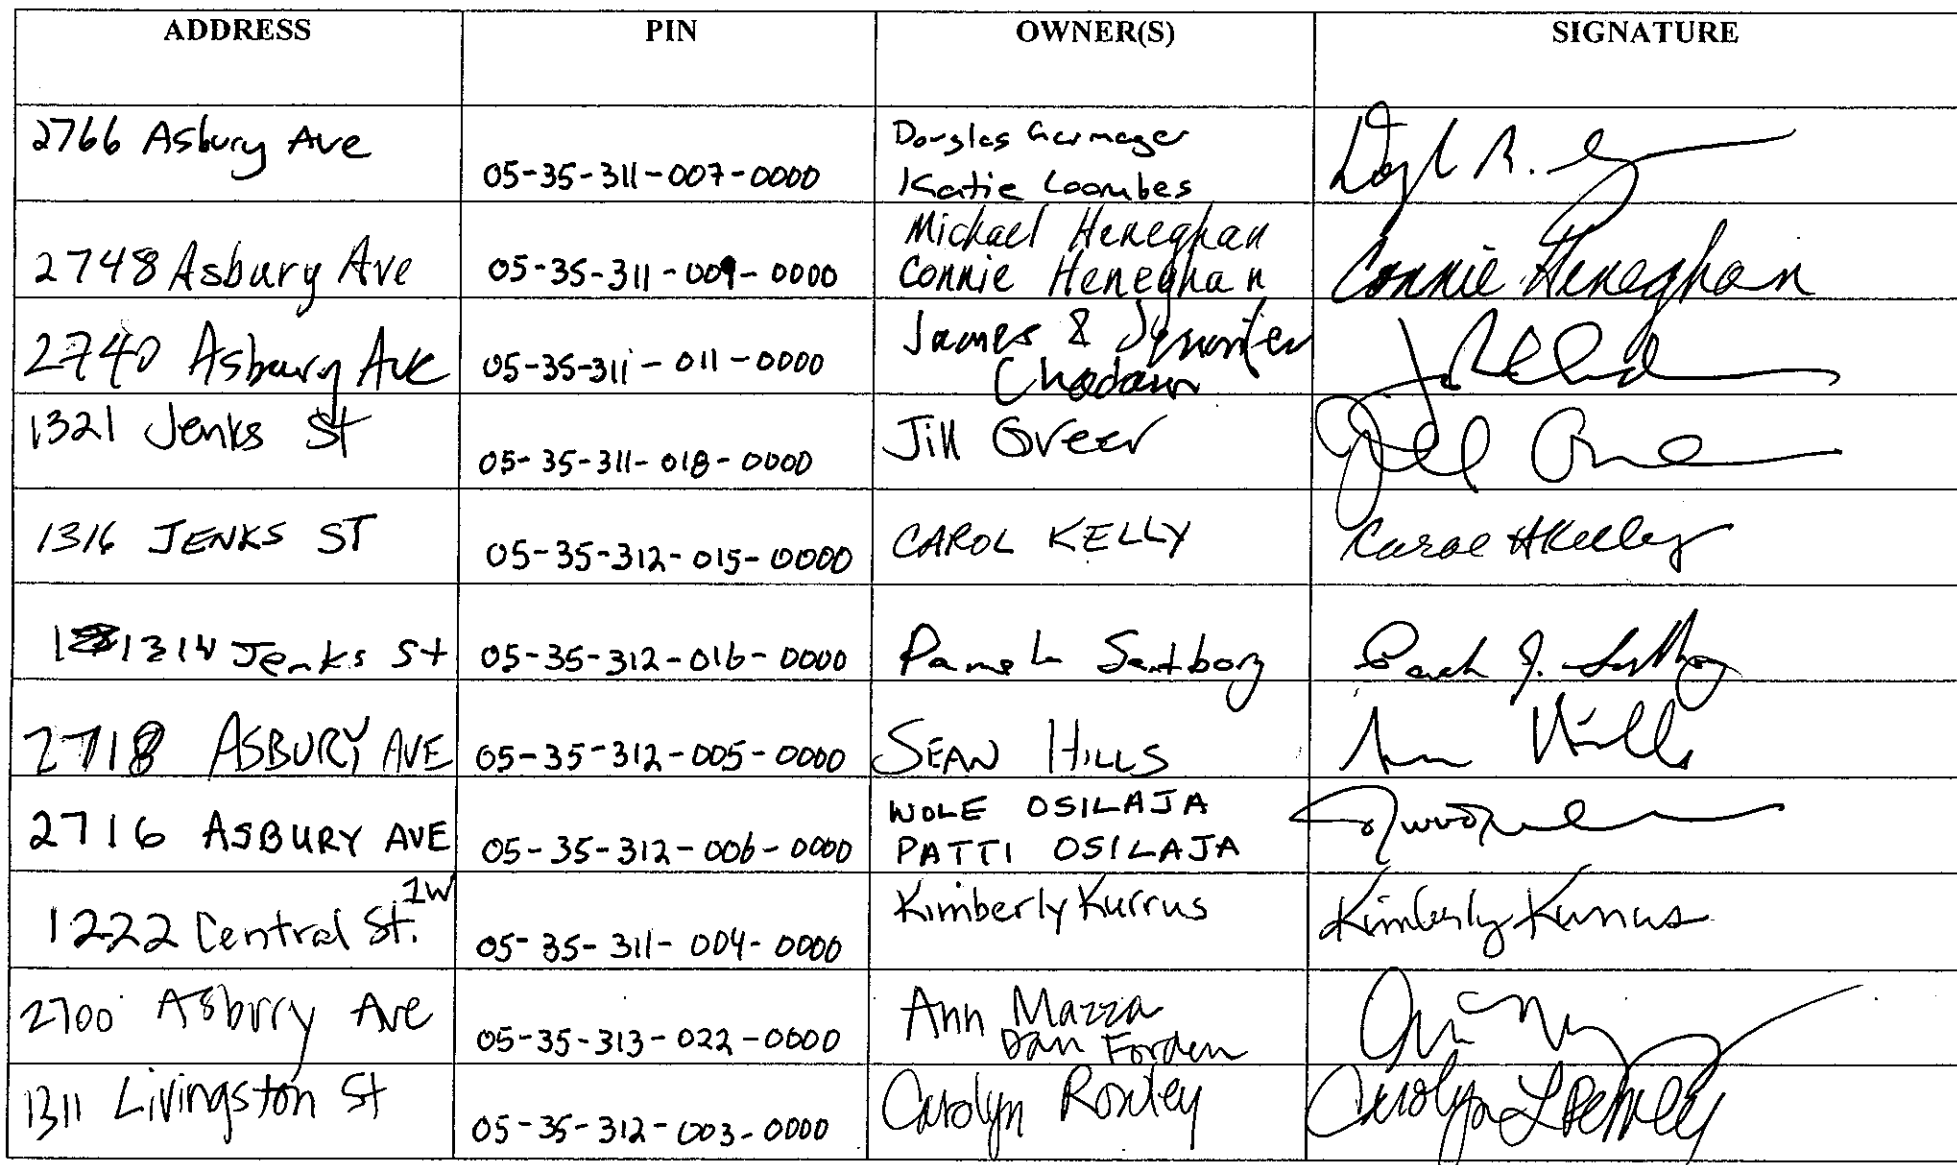 ADDRESS PIN OWNER(S) SIGNATURE
2766 Asbury Ave 05-35-311-007-0000 Douglas Garmager
Katie Coombes
2748 Asbury Ave 05-35-311-009-0000 Michael Heneghan
Connie Heneghan Connie Heneghan
2740 Asbury Ave 05-35-311-011-0000 James & Jennifer
1321 Jenks St 05-35-311-018-0000 Jill Greer Jill
1316 JENKS ST 05-35-312-015-0000 CAROL KELLY Carol H Kelley
Jenks St 05-35-312-016-0000 Pamela
2718 ASBURY AVE 05-35-312-005-0000 SEAN HILLS Hills
2716 ASBURY AVE 05-35-312-006-0000 WOLE OSILAJA
PATTI OSILAJA
1222 Central St. 1W 05-35-311-004-0000 Kimberly Kurrus Kimberly Kurrus
2700 Asbury Ave 05-35-313-022-0000 Ann Mazza
Dan Forden
1311 Livingston St 05-35-312-003-0000 Carolyn Carolyn